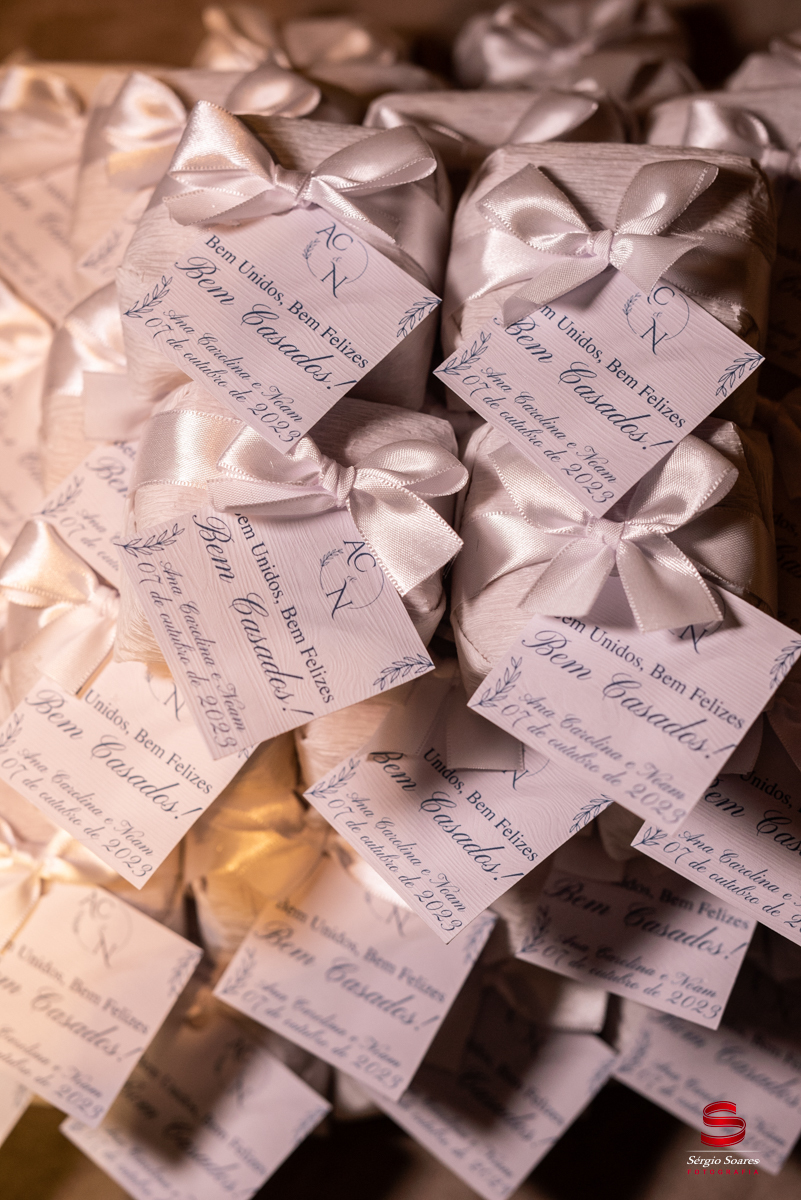 AC
&
N
Bem Unidos, Bem Felizes
Bem Casados!
Ana Carolina e Noam
07 de outubro de 2023
C
&
N
m Unidos, Bem Felizes
Bem Casados!
Ana Carolina e Noam
07 de outubro de 2023
AC
&
N
em Unidos, Bem Felizes
Bem Casados!
Ana Carolina e Noam
07 de outubro de 2023
N
em Unidos, Bem Felizes
Bem Casados!
Ana Carolina e Noam
07 de outubro de 2023
Unidos, Bem Felizes
Bem Casados!
Ana Carolina e Noam
07 de outubro de 2023
Unidos, Bem Felizes
Bem Casados!
Ana Carolina e Noam
07 de outubro de 2023
Bem Cas
Ana Carolina e
07 de outubro de 2
Bem Felizes
Bem Casados!
Ana Carolina e Noam
07 de outubro de 2023
AC
N
Unidos, Bem Felizes
Bem Casados!
Carolina e Noam
de outubro de 2023
em Unidos, Bem Felizes
Bem Casados!
Ana Carolina e Noam
07 de outubro de 2023
S
Sérgio Soares
FOTOGRAFIA